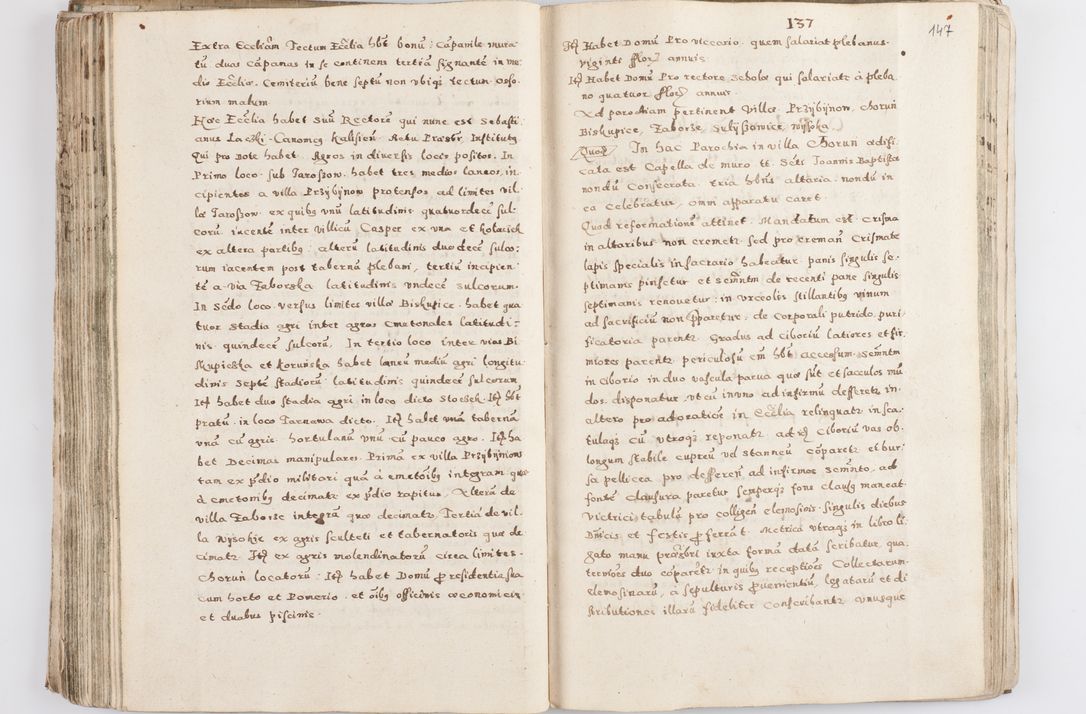 Extra Eccliam Tectum Ecclia hbt bonũ: Cãpanile mura
tũ duas Cãpanas in se continens tertiã signantẽ in me
dio Ecclia. Cemiteriũ bene septũ non ubiqȝ tectum. Osso
rium malum.
Hæc Ecclia habet suũ Rectorẽ qui nunc est Sebasti
anus Laczki. Canonicȝ Kalisieñ. Actu Præsbr, Institutȝ
Qui pro Dote habet. Agros in diversis locis positos. In
Primo loco sub Taroszow. habet tres medios laneos, in,
cipientes a villa Przybÿnow protensos ad limites vil,
læ Taroszow ex quibȝ unũ latitudinis quatuordecẽ sul,
corũ iacentẽ inter villicũ Casper ex una et kolasick
ex altera partibȝ: alterũ latitudinis duodecẽ sulco,
rum iacentem post tabernã plebani, tertiũ incipien,
tẽ a via Zaborska latitudinis undecẽ sulcorum.
In Sẽdo loco versus limites villæ Biskupice habet qua
tuor stadia agri inter agros Cmetonales latitudi,
nis quindecẽ sulcorũ, In tertio loco inter vias Bi
skupieżka et Koruńska habet laneũ mediũ agri longitu
dinis septẽ stadiorũ latitudinis quindecẽ sulcorum
Itȝ habet duo stadia agri in loco dicto Stocžek. Itȝ hbt
pratũ in loco Tarnawa dicto. Itȝ habet unã tabernã
unã cũ agris hortulanũ unũ cũ pauco agro. Itȝ ha
bet Decimas manipulares. Primã ex villa Przybÿnow
tam ex pdio militari quã à cmetõibȝ integram quæ
à cmetonibȝ decimatr ex pdio rapitur, Alterã de
villa Zaborze integrã quæ decimatr. Tertiã de vil,
la Wysokie ex agris sculteti et tabernatoris quæ de
cimatr. Itȝ ex agris molendinatorũ circa limites
Choruń locatorũ: Itȝ habet Domũ p residentia sua
cum horto et Pomerio et oĩbȝ officinis œconomicis
et duabus piscinis.
137
147
Itȝ Habet Domũ Pro viccario quem salariat plebanus
viginti flor annuis
Itȝ Habet Domũ Pro rectore Scholæ qui salariatr à pleba
no quatuor flor annuis.
Ad parochiam pertinent Villæ. Przybÿnow, Choruń
Biskupice, Zaborże, Suliszowice, Wysoka
Quoqȝ In hac Parochia in villa Choruń ædifi,
cata est Capella de muro tt. Scti Ioannis Baptistæ
nondũ Consecrata. tria hñs altaria. nondũ in
ea Celebratur, omni apparatu caret.
Quod reformationẽ attinet. Mandatum est. Crisma
in altaribus non cremetr. sed pro cremañ Crismate
lapis specialis in sacrario habeatur panis singulis se,
ptimanis pinsetur et scmñtm de recenti pane singulis
septimanis renovetur: in urceolis stillantibȝ vinum
ad sacrificiũ non pparetur: de Corporali putrido, puri,
ficatoria parentr. Gradus ad ciboriũ latiores et fir,
miores parentr periculosũ em hbt accessum. Scmñtm
in Ciborio in duo vascula parua quæ sũt et sacculos mũ
dos. disponatur. ut cũ in uno ad infirmũ defferetr in,
altero pro adoratiõe in Ecclia relinquatr in sca,
tulaqȝ cũ utroqȝ reponatr. ad id Ciboriũ vas ob,
longum stabile cupreũ vel stanneũ cõparetr et bur,
sa pellicea pro defferen ad infirmos scmñto, ad
fontẽ Clausura paretur semperqȝ fons clausȝ maneat
Victrici tabulæ pro colligeñ elemosinis. Singulis diebus
Dnicis et festis p ferrãt. Metrica utraqȝ in libro li,
gato manu præsbri iuxta formã datã scribatur, qua,
terniones duo cõparetr in quibȝ receptiões Collectarum,
elemosinarũ, à sepulturis pvenientiũ, legatarũ et di
stributiones illarũ fideliter conscribantr. unusque